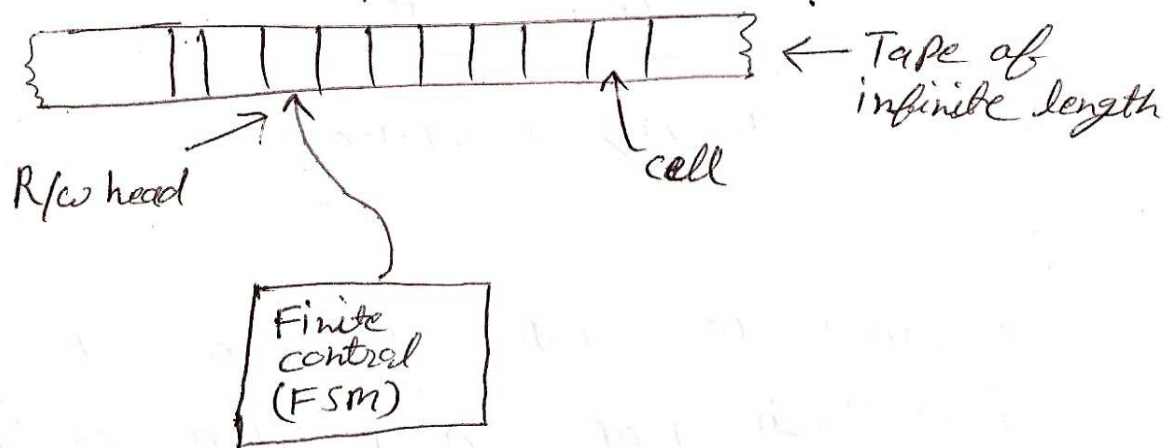 Tape of
infinite length
R/w head
cell
Finite
control
(FSM)